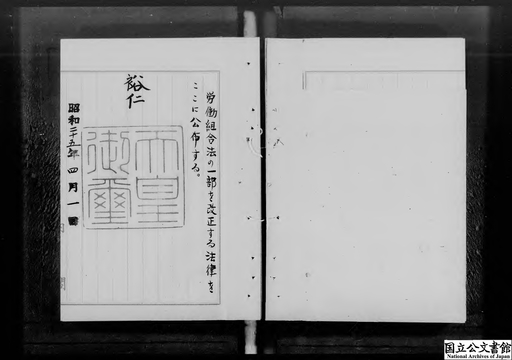 労働組合法の一部を改正する法律を
ここに公布する。
裕仁
天皇
御璽
昭和二十五年四月一日
国立公文書館
National Archives of Japan